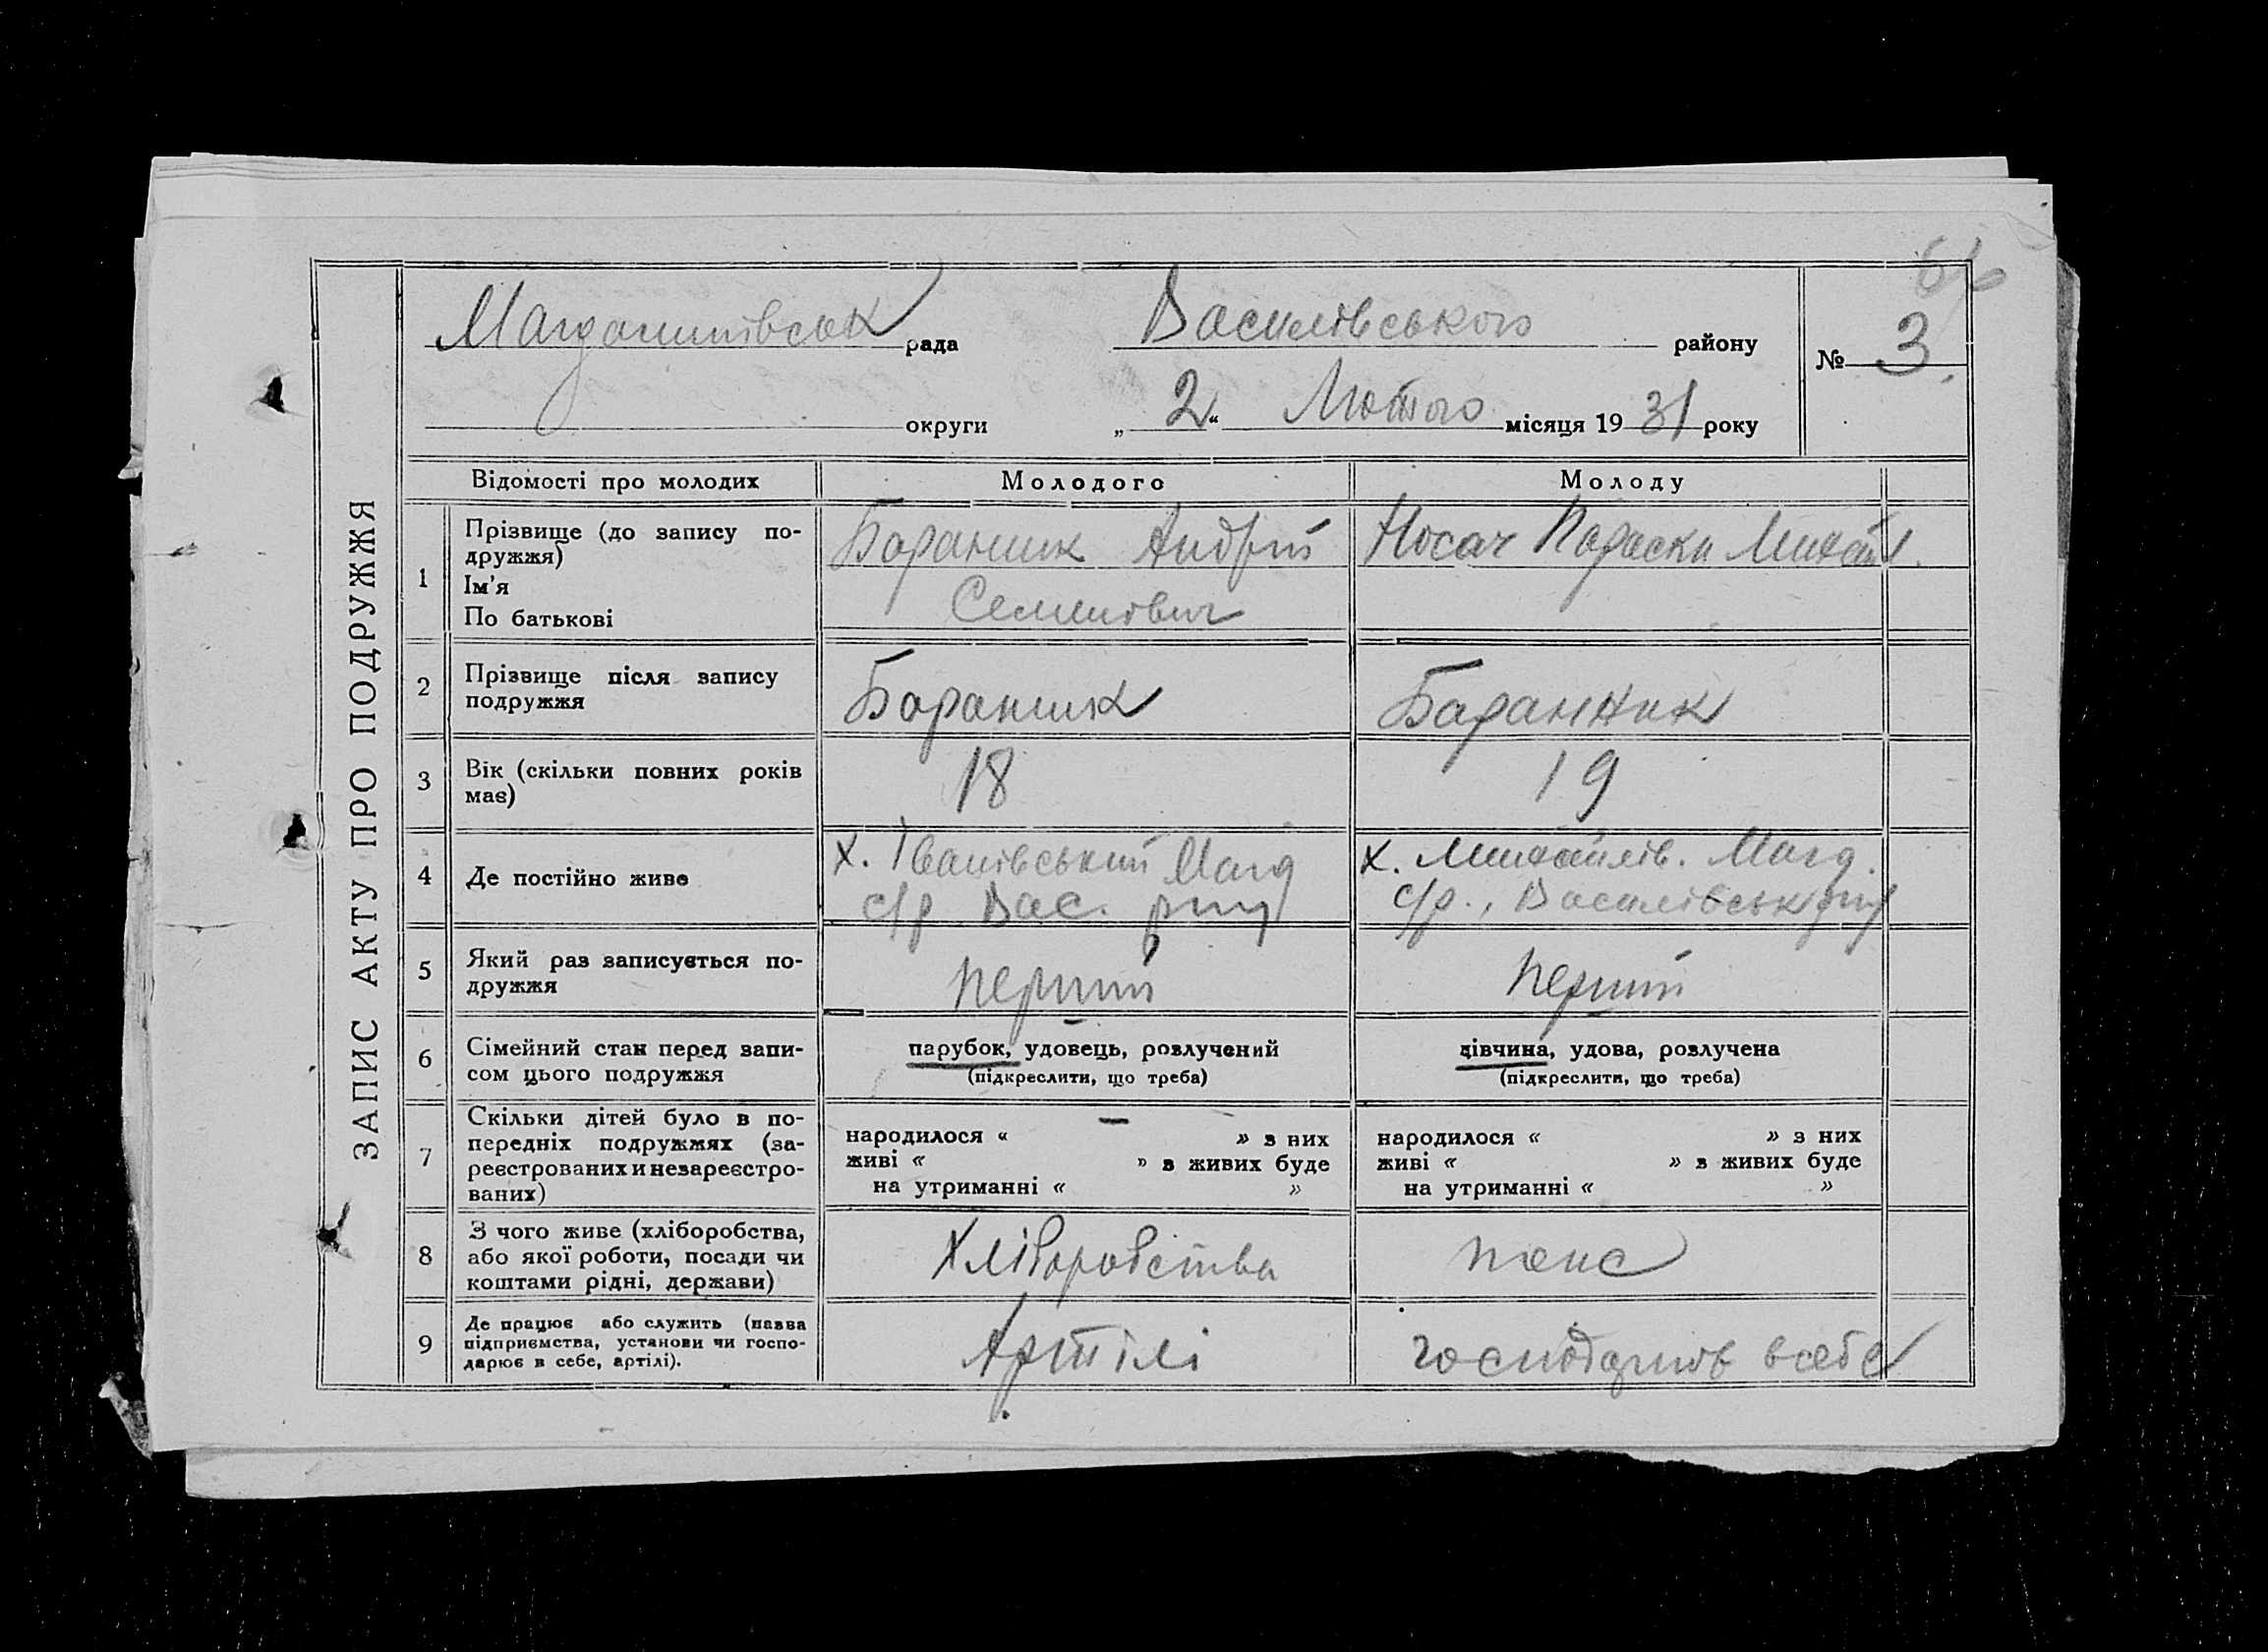 61
ЗАПИС АКТУ ПРО ПОДРУЖЖЯ
Магдалинівськ рада Василівського району
№ 3
округи „2“ Лютого місяця 1931 року
Відомості про молодих Молодого Молоду
1 Прізвище (до запису по-
дружжя)
Ім'я
По батькові
Бараник Андрій
Семенович
Носач Параски Михайл.
2 Прізвище після запису
подружжя
Бараник
Баранник
3 Вік (скільки повних років
має)
18
19
4 Де постійно живе
х. Іванівський Магд
с/р Вас. р-ну
х. Михайлів. Магд.
с/р., Василівськ р-ну
5 Який раз записується по-
дружжя
перший
перший
6 Сімейний стан перед запи-
сом цього подружжя
парубок, удовець, розлучений
(підкреслити, що треба)
дівчина, удова, розлучена
(підкреслити, що треба)
7 Скільки дітей було в по-
передніх подружжях (за-
реєстрованих и незареєстро-
ваних)
—
народилося « » з них
живі « » з живих буде
на утриманні « »
народилося « » з них
живі « » з живих буде
на утриманні « »
8 З чого живе (хліборобства,
або якої роботи, посади чи
коштами рідні, держави)
Хліборобства
тоже
9 Де працює або служить (назва
підприємства, установи чи госпо-
дарює в себе, артілі).
Артілі
господарює в себе